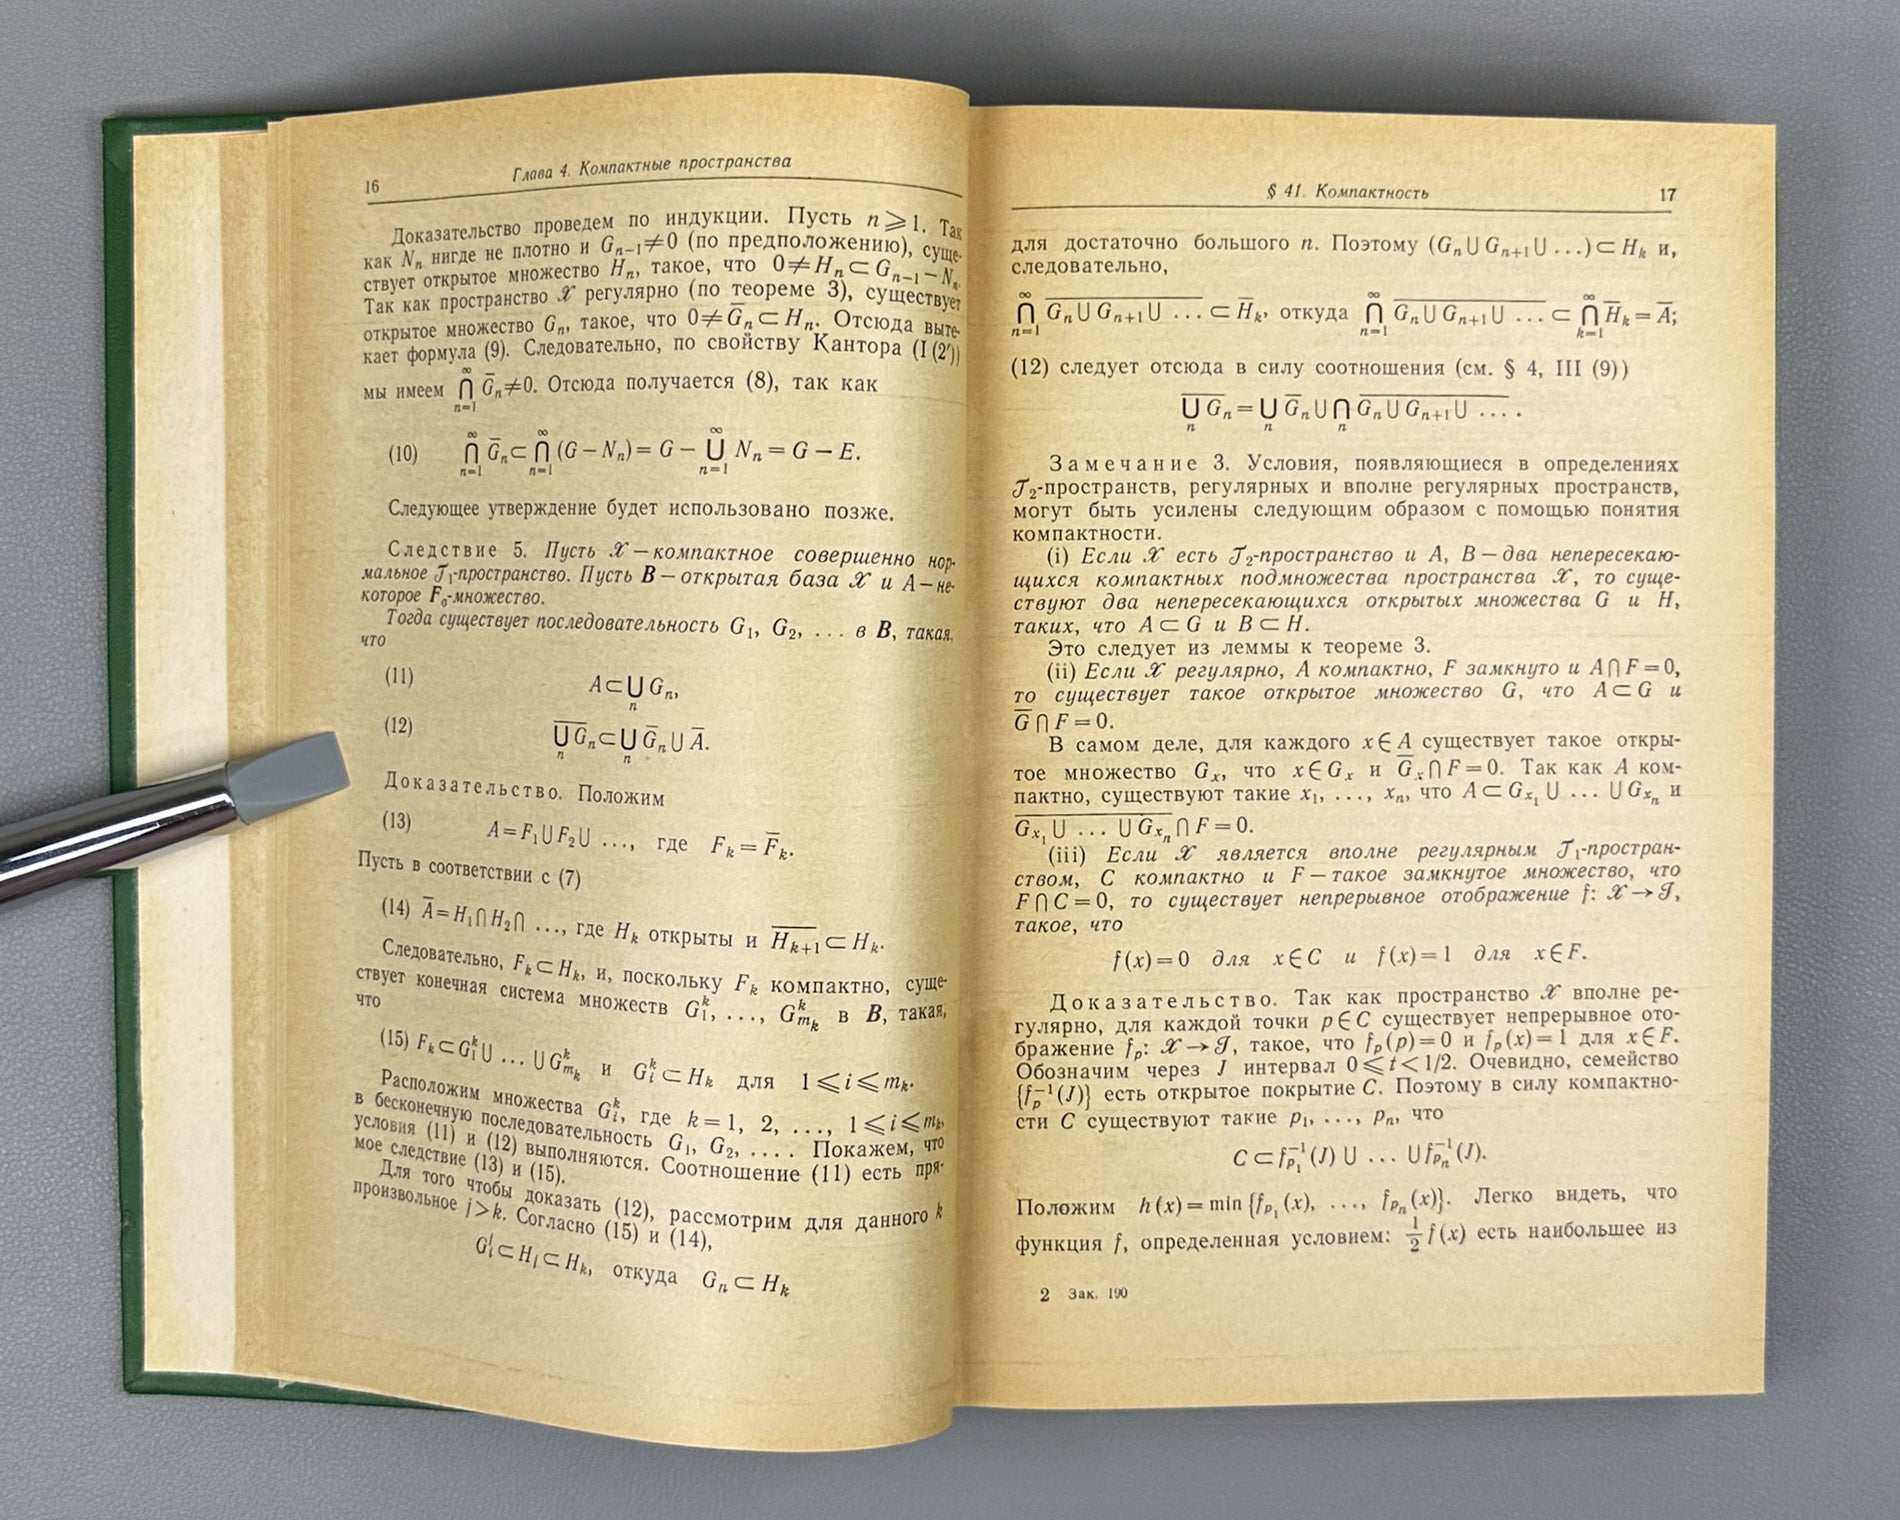 16
Глава 4. Компактные пространства
Доказательство проведем по индукции. Пусть n ⩾ 1. Так
как Nₙ нигде не плотно и Gₙ₋₁ ≠ 0 (по предположению), суще-
ствует открытое множество Hₙ, такое, что 0 ≠ Hₙ ⊂ Gₙ₋₁ — Nₙ.
Так как пространство 𝒳 регулярно (по теореме 3), существует
открытое множество Gₙ, такое, что 0 ≠ G̅ₙ ⊂ Hₙ. Отсюда выте-
кает формула (9). Следовательно, по свойству Кантора (I (2′))
мы имеем ⋂_{n=1}^{∞} G̅ₙ ≠ 0. Отсюда получается (8), так как
(10) ⋂_{n=1}^{∞} G̅ₙ ⊂ ⋂_{n=1}^{∞} (G — Nₙ) = G — ⋃_{n=1}^{∞} Nₙ = G — E.
Следующее утверждение будет использовано позже.
Следствие 5. Пусть 𝒳 — компактное совершенно нор-
мальное 𝒯₁-пространство. Пусть B — открытая база 𝒳 и A — не-
которое F_σ-множество.
Тогда существует последовательность G₁, G₂, ... в B, такая,
что
(11) A ⊂ ⋃_n Gₙ,
(12) \overline{⋃_n Gₙ} ⊂ ⋃_n G̅ₙ ∪ A̅.
Доказательство. Положим
(13) A = F₁ ∪ F₂ ∪ ..., где F_k = F̅_k.
Пусть в соответствии с (7)
(14) A̅ = H₁ ∩ H₂ ∩ ..., где H_k открыты и \overline{H_{k+1}} ⊂ H_k.
Следовательно, F_k ⊂ H_k, и, поскольку F_k компактно, суще-
ствует конечная система множеств G₁^k, ..., G_{m_k}^k в B, такая,
что
(15) F_k ⊂ G₁^k ∪ ... ∪ G_{m_k}^k и G_i^k ⊂ H_k для 1 ⩽ i ⩽ m_k.
Расположим множества G_i^k, где k = 1, 2, ..., 1 ⩽ i ⩽ m_k,
в бесконечную последовательность G₁, G₂, .... Покажем, что
условия (11) и (12) выполняются. Соотношение (11) есть пря-
мое следствие (13) и (15).
Для того чтобы доказать (12), рассмотрим для данного k
произвольное j > k. Согласно (15) и (14),
G_i^j ⊂ H_j ⊂ H_k, откуда Gₙ ⊂ H_k
§ 41. Компактность
17
для достаточно большого n. Поэтому (Gₙ ∪ Gₙ₊₁ ∪ ...) ⊂ H_k и,
следовательно,
⋂_{n=1}^{∞} \overline{Gₙ ∪ Gₙ₊₁ ∪ ...} ⊂ H̅_k, откуда ⋂_{n=1}^{∞} \overline{Gₙ ∪ Gₙ₊₁ ∪ ...} ⊂ ⋂_{k=1}^{∞} H̅_k = A̅;
(12) следует отсюда в силу соотношения (см. § 4, III (9))
\overline{⋃_n Gₙ} = ⋃_n G̅ₙ ∪ ⋂_n \overline{Gₙ ∪ Gₙ₊₁ ∪ ...}.
Замечание 3. Условия, появляющиеся в определениях
𝒯₂-пространств, регулярных и вполне регулярных пространств,
могут быть усилены следующим образом с помощью понятия
компактности.
(i) Если 𝒳 есть 𝒯₂-пространство и A, B — два непересекаю-
щихся компактных подмножества пространства 𝒳, то суще-
ствуют два непересекающихся открытых множества G и H,
таких, что A ⊂ G и B ⊂ H.
Это следует из леммы к теореме 3.
(ii) Если 𝒳 регулярно, A компактно, F замкнуто и A ∩ F = 0,
то существует такое открытое множество G, что A ⊂ G и
G̅ ∩ F = 0.
В самом деле, для каждого x ∈ A существует такое откры-
тое множество Gₓ, что x ∈ Gₓ и G̅ₓ ∩ F = 0. Так как A ком-
пактно, существуют такие x₁, ..., xₙ, что A ⊂ G_{x₁} ∪ ... ∪ G_{xₙ} и
\overline{G_{x₁} ∪ ... ∪ G_{xₙ}} ∩ F = 0.
(iii) Если 𝒳 является вполне регулярным 𝒯₁-простран-
ством, C компактно и F — такое замкнутое множество, что
F ∩ C = 0, то существует непрерывное отображение f: 𝒳 → 𝒥,
такое, что
f(x) = 0 для x ∈ C и f(x) = 1 для x ∈ F.
Доказательство. Так как пространство 𝒳 вполне ре-
гулярно, для каждой точки p ∈ C существует непрерывное ото-
бражение f_p: 𝒳 → 𝒥, такое, что f_p(p) = 0 и f_p(x) = 1 для x ∈ F.
Обозначим через J интервал 0 ⩽ t < 1/2. Очевидно, семейство
{f_p⁻¹(J)} есть открытое покрытие C. Поэтому в силу компактно-
сти C существуют такие p₁, ..., pₙ, что
C ⊂ f_{p₁}⁻¹(J) ∪ ... ∪ f_{pₙ}⁻¹(J).
Положим h(x) = min {f_{p₁}(x), ..., f_{pₙ}(x)}. Легко видеть, что
функция f, определенная условием: ½ f(x) есть наибольшее из
2 Зак. 190